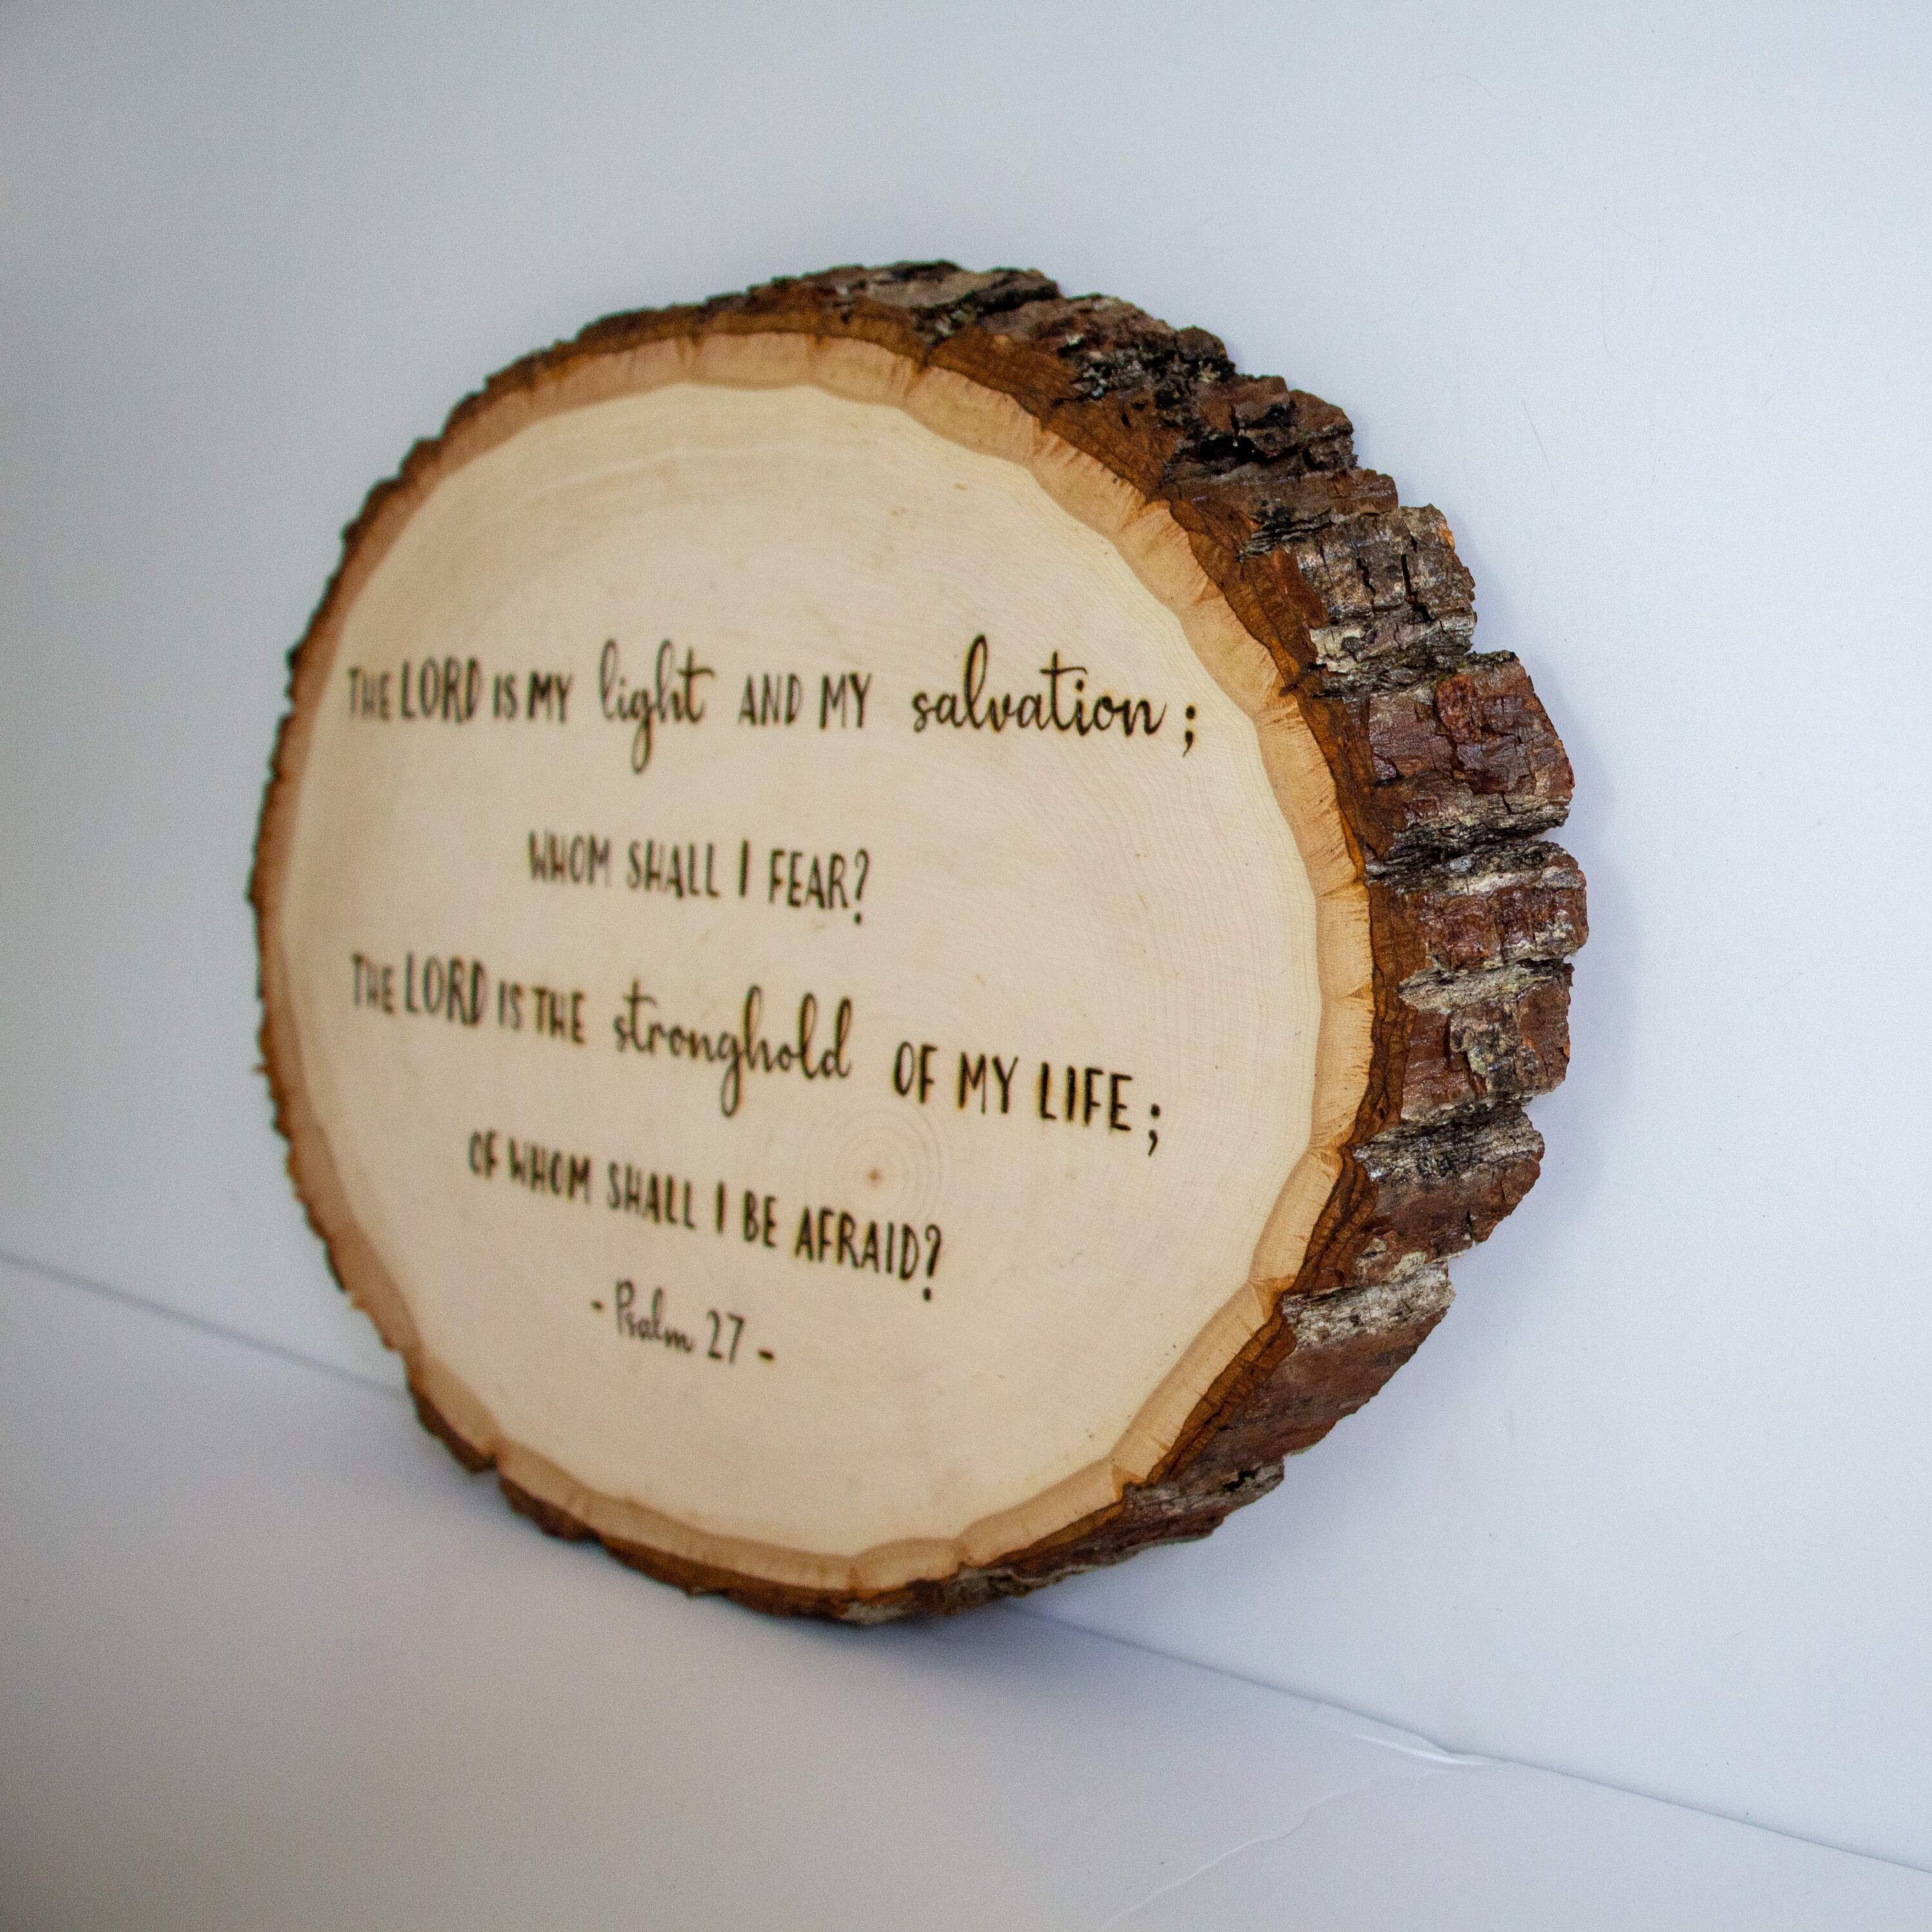 THE LORD IS MY light AND MY salvation;
WHOM SHALL I FEAR?
THE LORD IS THE stronghold OF MY LIFE;
OF WHOM SHALL I BE AFRAID?
- Psalm 27 -